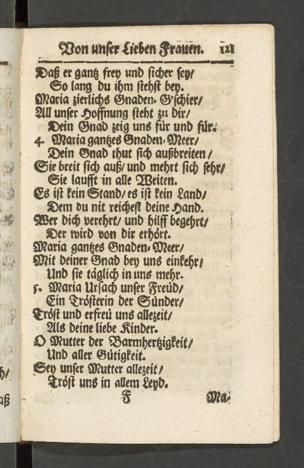 Von unser Lieben Frauen. 121
Daß er gantz frey und sicher sey/
So lang du ihm stehst bey.
Maria zierlichs Gnaden-G'schier/
All unser Hoffnung steht zu dir/
Dein Gnad zeig uns für und für.
4. Maria gantzes Gnaden-Meer/
Dein Gnad thut sich außbreiten/
Sie breit sich auß/ und mehrt sich sehr/
Sie laufft in alle Weiten.
Es ist kein Stand/ es ist kein Land/
Dem du nit reichest deine Hand.
Wer dich verehrt/ und hilff begehrt/
Der wird von dir erhört.
Maria gantzes Gnaden-Meer/
Mit deiner Gnad bey uns einkehr/
Und sie täglich in uns mehr.
5. Maria Ursach unser Freüd/
Ein Trösterin der Sünder/
Tröst und erfreü uns allezeit/
Als deine liebe Kinder.
O Mutter der Barmhertzigkeit/
Und aller Gütigkeit.
Sey unser Mutter allezeit/
Tröst uns in allem Leyd.
F Ma-